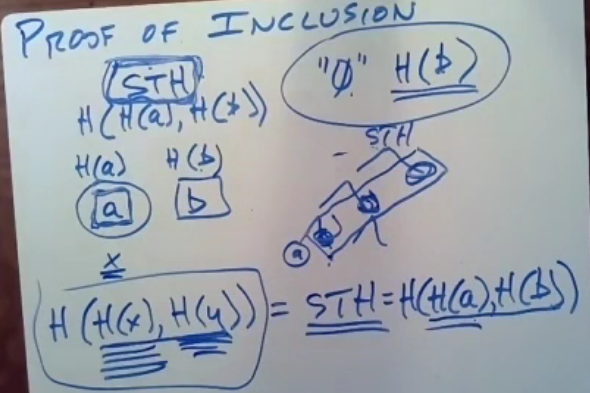 PROOF OF INCLUSION
STH
H(H(a), H(b))
H(a) H(b)
a b
"0" H(b)
STH
a
x
H(H(x), H(y)) = STH = H(H(a), H(b))